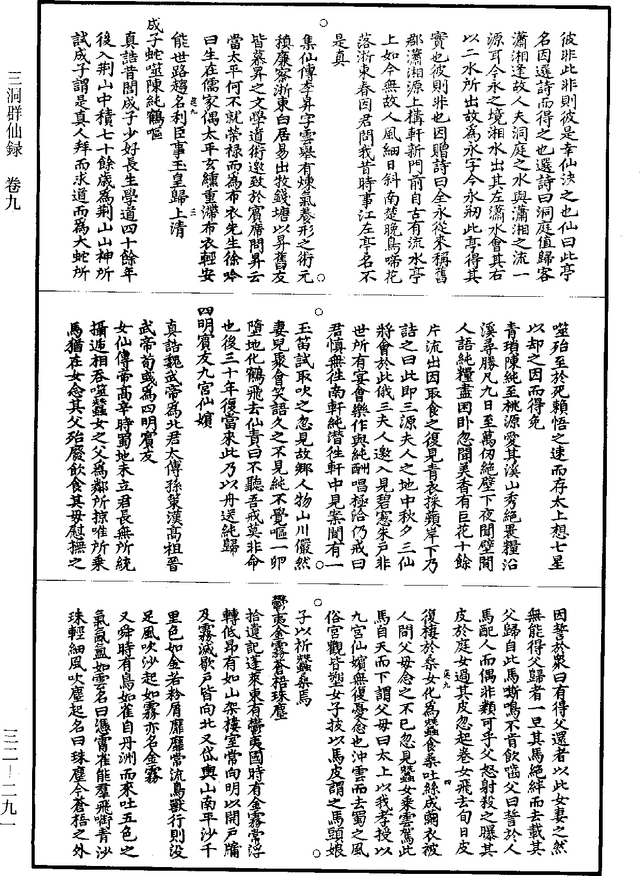 三洞群仙録 卷九
三二—二九一
彼非此非則彼是幸仙決之也仙曰此亭
名因選詩而得之也選詩曰洞庭值歸客
瀟湘逢故人夫洞庭之水與瀟湘之流一
源耳今永之境湘水出其左瀟水會其右
以二水所出故為永字今永刱此亭得其
實也彼則非也因贈詩曰全永從來稱舊
郡瀟湘源上構軒新門前自古有流水亭
上如今無故人風細日斜南楚晚鳥啼花
落浙東春因君問我昔時事江左亭名不
是真
集仙傳李昇字雲舉有煉氣養形之術元
稹廉察浙東白居易出牧錢塘以昇舊友
皆慕昇之文學道術邀致於賓席問昇云
當太平何不就榮禄而為布衣先生徐吟
曰生在儒家偶太平玄纁重滯布衣輕安
能世路趨名利臣事玉皇歸上清
成子蛇噬陳純鶴嘔
真誥昔閭成子少好長生學道四十餘年
後入荆山中積七十餘歲為荆山山神所
試成子謂是真人拜而求道而為大蛇所
噬殆至於死賴悟之速而存太上想七星
以却之因而得免
青瑣陳純至桃源愛其溪山秀絕裹糧沿
溪尋勝凡九日至萬仞絕壁下夜聞壁間
人語純糧盡困卧忽聞美香有巨花十餘
片流出因取食之復見青衣採蘋岸下乃
詰之曰此即三源夫人之地中秋夕三仙
將會於此俄三夫人邀入見碧窻朱戶非
世所有宴會樂作與純酬唱極洽仍戒曰
君慎無往南軒純潛往軒中見案間有一
玉笛試取吹之忽見故鄉人物山川儼然
妻兒聚會笑語久之不見純不覺嘔一卵
墮地化鶴飛去仙責曰不聽吾戒莫非命
也後三十年復當來此乃以丹送純歸
四明賓友九宮仙嬪
真誥魏武帝為北君太傅孫策漢高祖晉
武帝荀彧為四明賓友
女仙傳帝高辛時蜀地未立君長無所統
攝遞相吞噬蠶女之父為鄰所掠唯所乘
馬猶在女念其父殆廢飲食其母慰撫之
因誓於眾曰有得父還者以此女妻之然
無能得父歸者一旦其馬絕絆而去載其
父歸自此馬嘶鳴不肯飲囓父曰誓於人
馬配人而偶非類可乎父怒射殺之曝其
皮於庭女過其皮忽起卷女飛去旬日皮
復棲於桑女化為蠶食桑吐絲成繭衣被
人間父母念之不已忽見蠶女乘雲駕此
馬自天而下謂父母曰太上以我孝授以
九宮仙嬪無復憂念也沖雲而去蜀之風
俗宮觀皆塑女子披以馬皮謂之馬頭娘
子以祈蠶桑焉
鬱夷金霧蒼梧珠塵
拾遺記蓬萊東有鬱夷國時有金霧常浮
轉低昂有如山架樓室常向明以開戶牖
及霧滅歇戶皆向北又岱輿山南平沙千
里色如金若粉屑靡靡常流鳥獸行則沒
足風吹沙起如霧亦名金霧
又舜時有鳥如雀自丹洲而來吐五色之
氣氤氳如雲名曰憑霄雀能羣飛啣青沙
珠輕細風吹塵起名曰珠塵今蒼梧之外